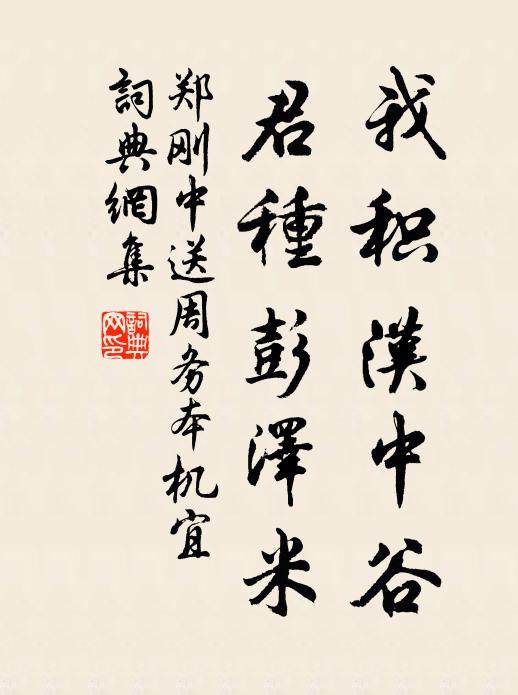 我积漢中谷
君種彭澤米
郑刚中送周务本机宜
詞典網集
詞典网印